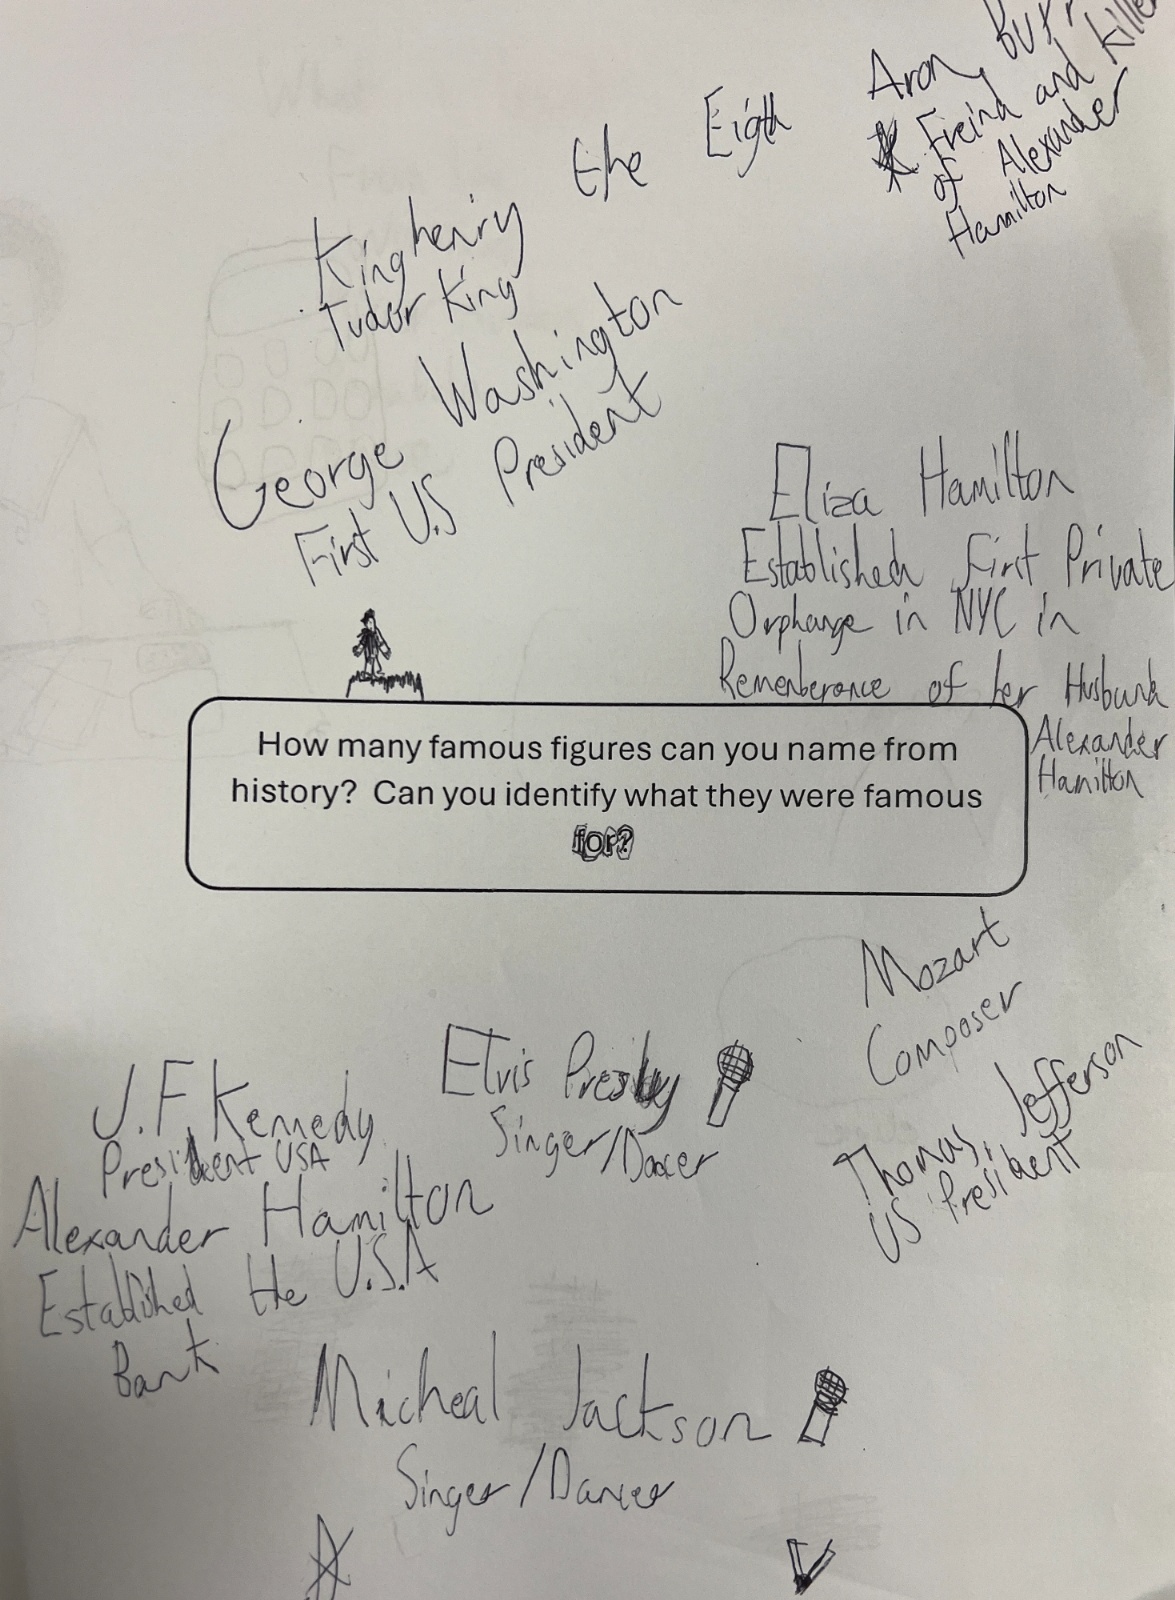 Aron Burr
Freind and killer
of Alexander
Hamilton
King henry the Eigth
Tudor King
George Washington
First U.S President
Eliza Hamilton
Established First Private
Orphange in NYC in
Rememberance of her Husband
Alexander
Hamilton
How many famous figures can you name from
history? Can you identify what they were famous
for?
Mozart
Composer
Elvis Presley
Singer/Dancer
J.F.Kennedy
President USA
Thomas Jefferson
US President
Alexander Hamilton
Established the U.S.A
Bank
Micheal Jackson
Singer/Dancer